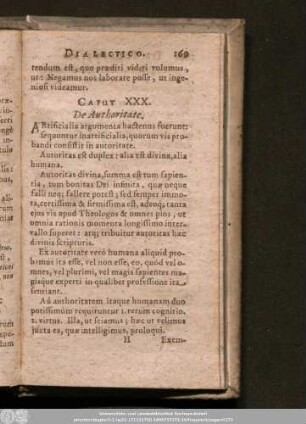 DIALECTICO. 169
tendum est, quo præditi videri volumus,
ut: Negamus nos laborare posse, ut inge-
niosi videamur.
CAPUT XXX.
De Authoritate.
ARtificialia argumenta hactenus fuerunt:
sequuntur inartificialia, quorum vis pro-
bandi consistit in autoritate.
Autoritas est duplex: alia est divina, alia
humana.
Autoritas divina, summa est tum sapien-
tia, tum bonitas Dei infinita, quæ neque
falli neq; fallere potest; sed semper immo-
ta, certissima & firmissima est, adeoq; tanta
ejus vis apud Theologos & omnes pios, ut
omnia rationis momenta longissimo inter-
vallo superet: atq; tribuitur autoritas hæc
divinis Scripturis.
Ex autoritate vero humana aliquid pro-
bamus ita esse, vel non esse, eo, quod vel o-
mnes, vel plurimi, vel magis sapientes ma-
gisque experti in qualibet professione ita
sentiant.
Ad authoritatem itaque humanam duo
potissimum requiruntur 1. rerum cognitio,
2. virtus. Illa, ut sciamus; hæc ut velimus
juxta ea, quæ intelligimus, proloqui.
H Exem-